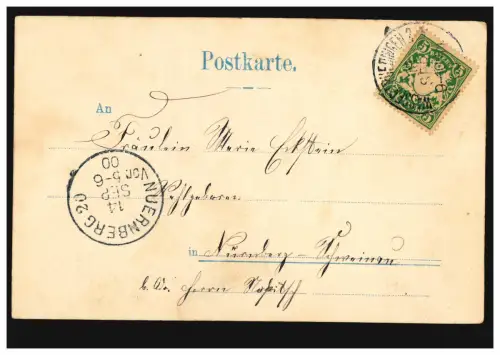 Postkarte.
5 5
An
Fräulein Marie Eckstein
Wohlgeboren
in Nürnberg - Schweinau
b. Herrn
NUERNBERG 20
14
SEP
Vor. 5-6
00